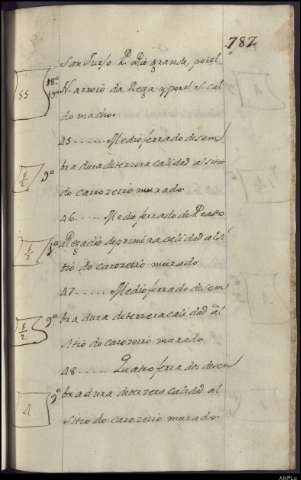 787
San Turso L. Dio grande, por el
N. arroio da Rega y por el S. cal
do macho.
45 ..... Medio ferrado de sem
bradura de terzera calidad al sitio
do carrozerio murado.
46 ..... Medio ferrado de Prado
Regadio de primera calidad al si
tio do carozerio murado
47 ..... Medio ferrado de sem
bradura de terzera calidad al
sitio do carozerio murado.
48 ..... Quatro ferrados de sem
bradura de terzera calidad al
sitio do carozerio murado.